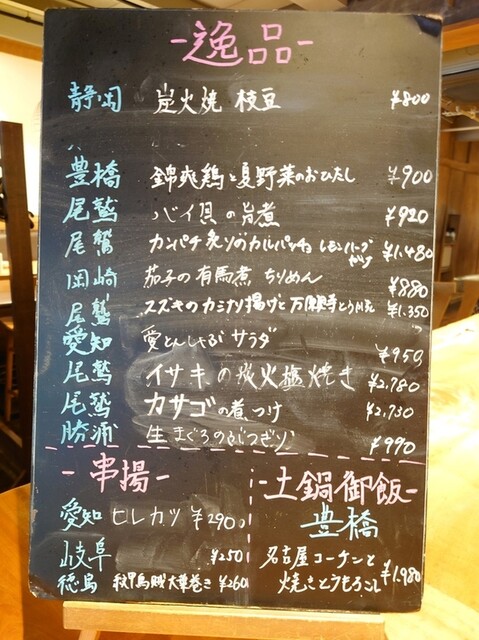 -逸品-
静岡 炭火焼 枝豆 ¥800
豊橋 錦爽鶏と夏野菜のおひたし ¥900
尾鷲 バイ貝の旨煮 ¥920
尾鷲 カンパチ炙りのカルパッチョ レモンハーブ ¥1.480
岡崎 茄子の有馬煮 ちりめん ¥880
尾鷲 スズキのカミナリ揚げと万願寺とうがらし ¥1.350
愛知 愛とんしゃぶサラダ ¥950
尾鷲 イサキの炭火塩焼き ¥2,780
尾鷲 カサゴの煮つけ ¥2,730
勝浦 生まぐろの ¥990
-串揚-
愛知 ヒレカツ ¥290
岐阜 ¥250
徳島 紋甲烏賊大葉巻き ¥260
-土鍋御飯-
豊橋
名古屋コーチンと
焼きとうもろこし ¥1.980